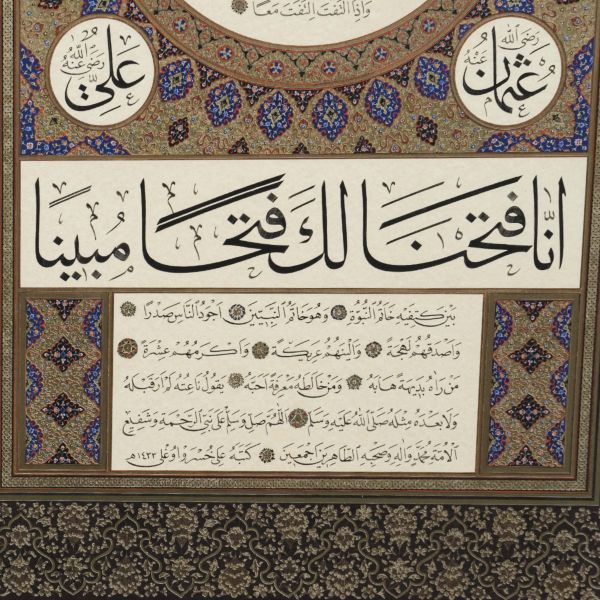 وَإِذَا الْتَفَتَ الْتَفَتَ مَعًا
عُثْمَان رَضِيَ اللّٰهُ عَنْهُ
عَلِيّ رَضِيَ اللّٰهُ عَنْهُ
إِنَّا فَتَحْنَا لَكَ فَتْحًا مُبِينًا
بَيْنَ كَتِفَيْهِ خَاتَمُ النُّبُوَّةِ وَهُوَ خَاتَمُ النَّبِيِّينَ أَجْوَدُ النَّاسِ صَدْرًا
وَأَصْدَقُهُمْ لَهْجَةً وَأَلْيَنُهُمْ عَرِيكَةً وَأَكْرَمُهُمْ عِشْرَةً
مَنْ رَآهُ بَدِيهَةً هَابَهُ وَمَنْ خَالَطَهُ مَعْرِفَةً أَحَبَّهُ يَقُولُ نَاعِتُهُ لَمْ أَرَ قَبْلَهُ
وَلَا بَعْدَهُ مِثْلَهُ صَلَّى اللّٰهُ عَلَيْهِ وَسَلَّمَ اللّٰهُمَّ صَلِّ وَسَلِّمْ عَلَى نَبِيِّ الرَّحْمَةِ وَشَفِيعِ
الْأُمَّةِ مُحَمَّدٍ وَآلِهِ وَصَحْبِهِ الطَّاهِرِينَ أَجْمَعِينَ كَتَبَهُ عَلِي خُسْرَو أُوغْلِي ١٤٣٣هـ